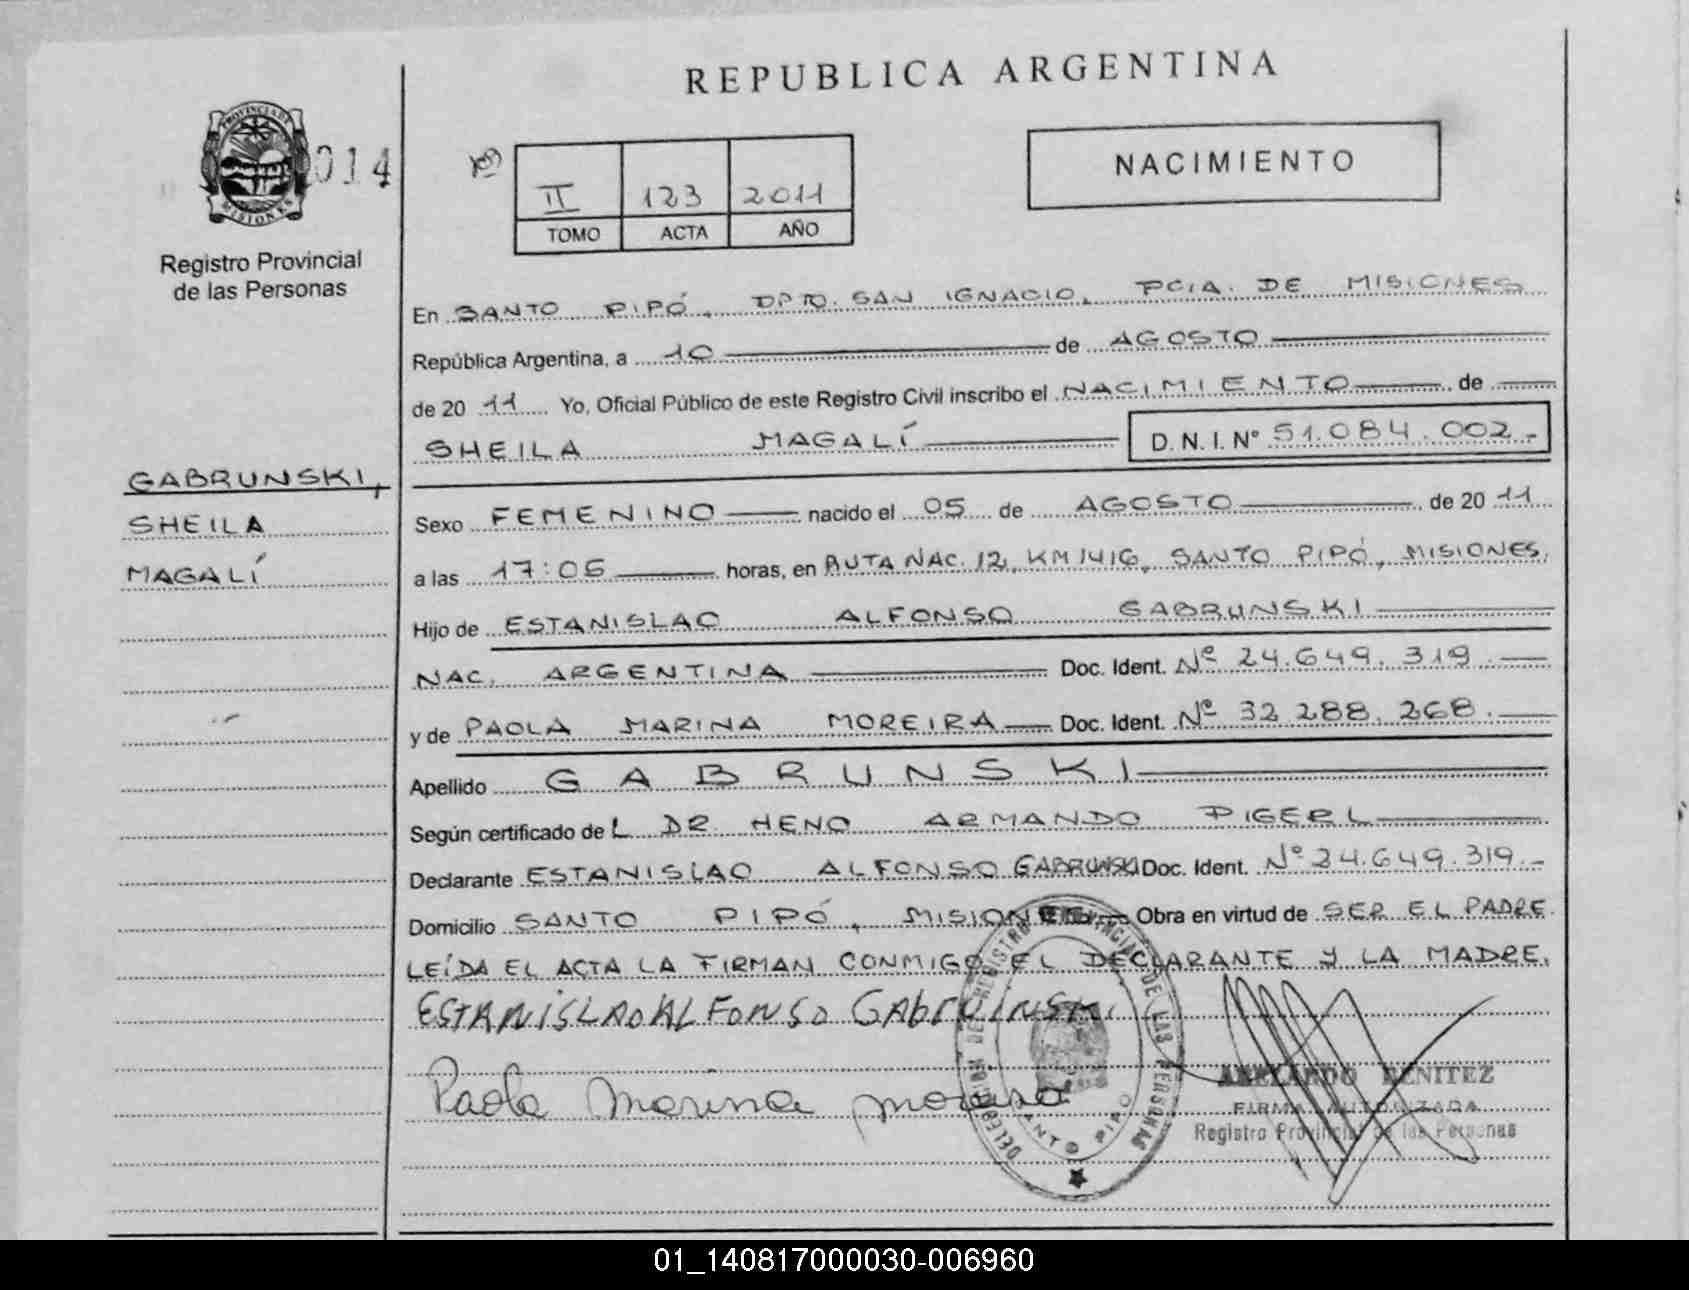 REPUBLICA ARGENTINA
PROVINCIA DE
MISIONES
014
Registro Provincial
de las Personas
II 123 2011
TOMO ACTA AÑO
NACIMIENTO
En SANTO PIPÓ, DPTO. SAN IGNACIO, PCIA. DE MISIONES
República Argentina, a 10 de AGOSTO
de 20 11 Yo, Oficial Público de este Registro Civil inscribo el NACIMIENTO de
SHEILA MAGALÍ D.N.I. Nº 51.084.002.-
GABRUNSKI,
SHEILA
MAGALÍ
Sexo FEMENINO nacido el 05 de AGOSTO de 20 11
a las 17:05 horas, en RUTA NAC. 12, KM 1416, SANTO PIPÓ, MISIONES,
Hijo de ESTANISLAO ALFONSO GABRUNSKI
NAC. ARGENTINA Doc. Ident. Nº 24.649.319.
y de PAOLA MARINA MOREIRA Doc. Ident. Nº 32 288.268.
Apellido GABRUNSKI
Según certificado de L DR HENO ARMANDO PIGERL
Declarante ESTANISLAO ALFONSO GABRUNSKI Doc. Ident. Nº 24.649.319.-
Domicilio SANTO PIPÓ, MISIONES Obra en virtud de SER EL PADRE.
LEÍDA EL ACTA LA FIRMAN CONMIGO EL DECLARANTE Y LA MADRE.
ESTANISLAO ALFONSO GABRUNSKI
Paola Marina Moreira
DELEGACION DEL REGISTRO PROVINCIAL DE LAS PERSONAS
SANTO PIPO
ABELARDO BENITEZ
FIRMA AUTORIZADA
Registro Provincial de las Personas
01_140817000030-006960